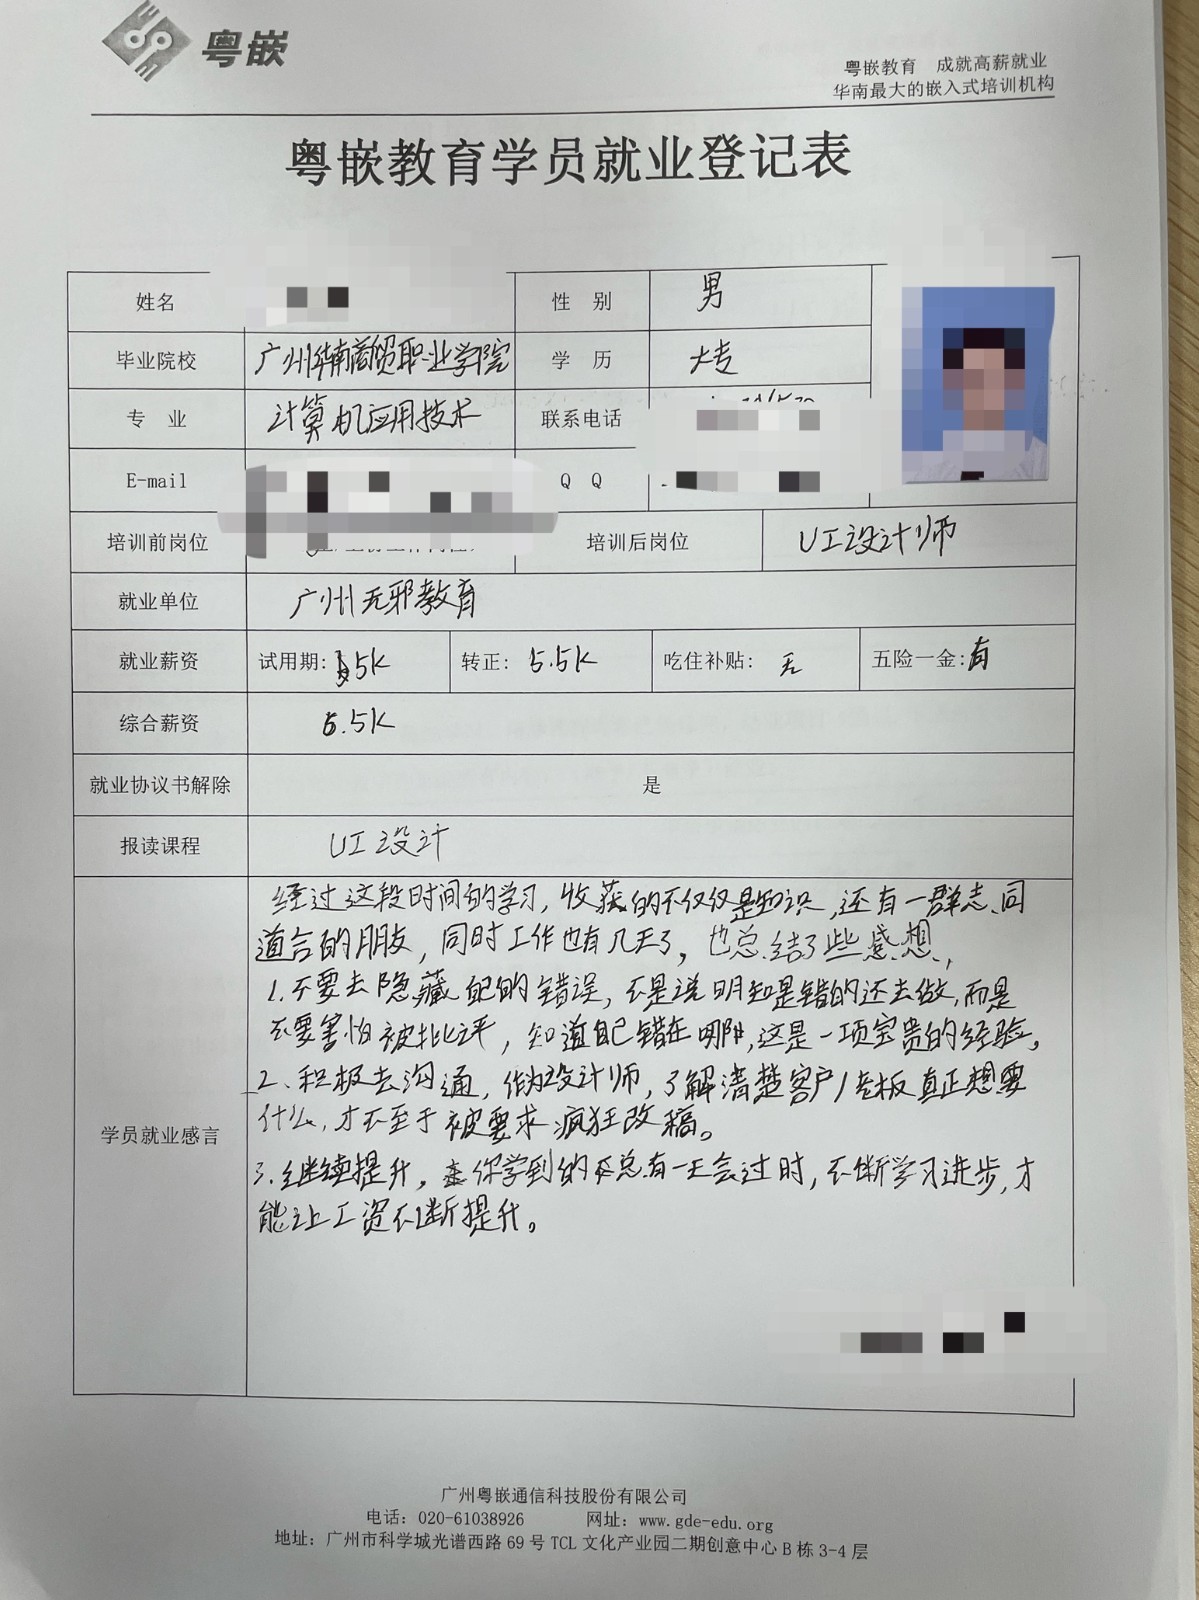 粤嵌
粤嵌教育 成就高薪就业
华南最大的嵌入式培训机构
粤嵌教育学员就业登记表
姓名 性 别 男
毕业院校 广州华南商贸职业学院 学 历 大专
专 业 计算机应用技术 联系电话
E-mail Q Q
培训前岗位 培训后岗位 UI设计师
就业单位 广州无邪教育
就业薪资 试用期: 5K 转正: 5.5K 吃住补贴: 无 五险一金:有
综合薪资 5.5K
就业协议书解除 是
报读课程 UI设计
学员就业感言
经过这段时间的学习,收获的不仅仅是知识,还有一群志同
道合的朋友,同时工作也有几天了,也总结了些感想,
1.不要去隐藏自己的错误,不是说明知是错的还去做,而是
不要害怕被批评,知道自己错在哪,这是一项宝贵的经验。
2、积极去沟通,作为设计师,了解清楚客户/老板真正想要
什么,才不至于被要求疯狂改稿。
3.继续提升,你学到的总有一天会过时,不断学习进步,才
能让工资不断提升。
广州粤嵌通信科技股份有限公司
电话: 020-61038926 网址: www.gde-edu.org
地址: 广州市科学城光谱西路 69 号 TCL 文化产业园二期创意中心 B 栋 3-4 层